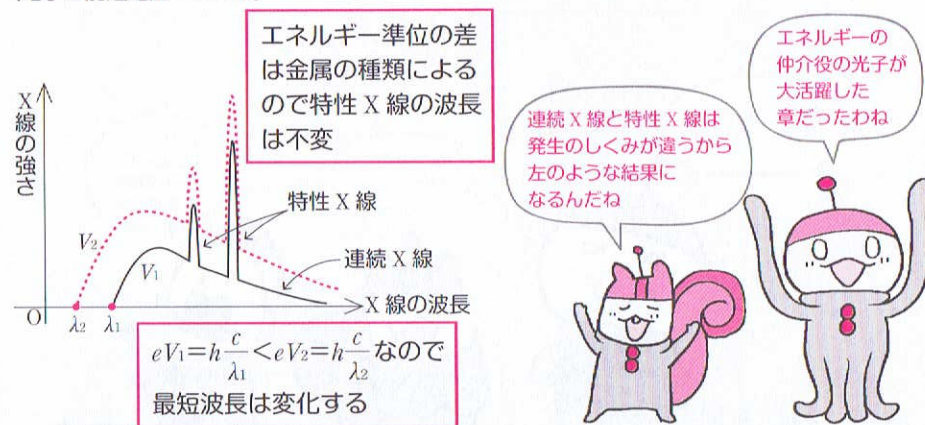 エネルギー準位の差
は金属の種類による
ので特性X線の波長
は不変
X線の強さ
V₂
V₁
特性X線
連続X線
X線の波長
O
λ₂
λ₁
eV₁=h c/λ₁<eV₂=h c/λ₂なので
最短波長は変化する
連続X線と特性X線は
発生のしくみが違うから
左のような結果に
なるんだね
エネルギーの
仲介役の光子が
大活躍した
章だったわね